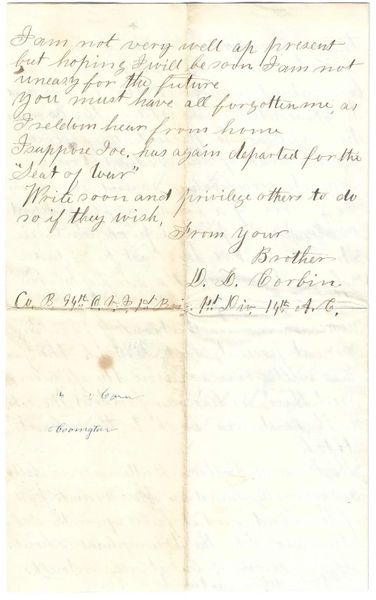 I am not very well ap present
but hoping I will be soon I am not
uneasy for the future
you must have all forgotten me, as
I seldum hear from home
I suppose Joe, has again departed for the
"Seat of War"
Write soon and privilege others to do
so if they wish,
From your
Brother
D. D. Corbin
Co. B. 94th O. V. I. 1st Brig. 1st Div, 14th A. C.
Covington